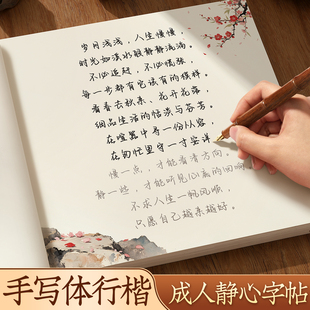 岁月浅浅，人生慢慢，
时光如溪水般静静流淌。
不必追赶，不必慌张，
每一步都有它该有的模样。
看春去秋来，花开花落，
细品生活的恬淡与芬芳。
在喧嚣中寻一份从容，
在匆忙里守一寸安详。
慢一点，才能看清方向，
静一些，才能听见心底的回响。
不求人生一帆风顺，
只愿自己越来越好。
手写体行楷
成人静心字帖